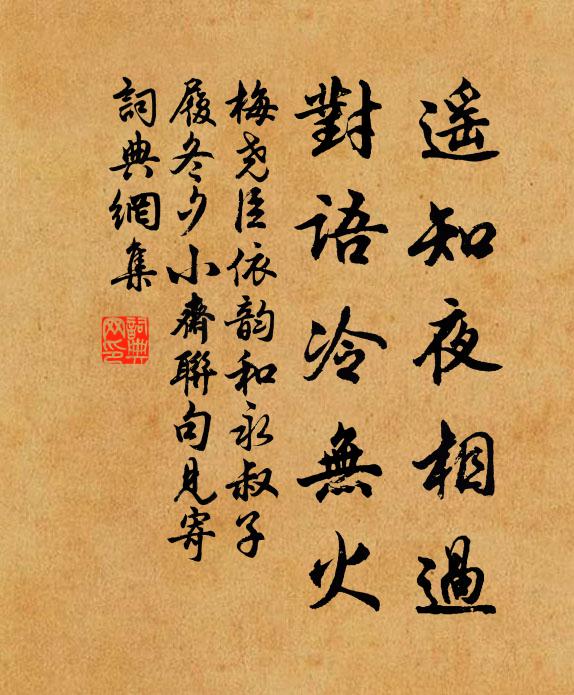 遥知夜相過
對語冷無火
梅堯臣依韵和永叔子
履冬夕小齋聯句見寄
詞典網集
詞典
网印